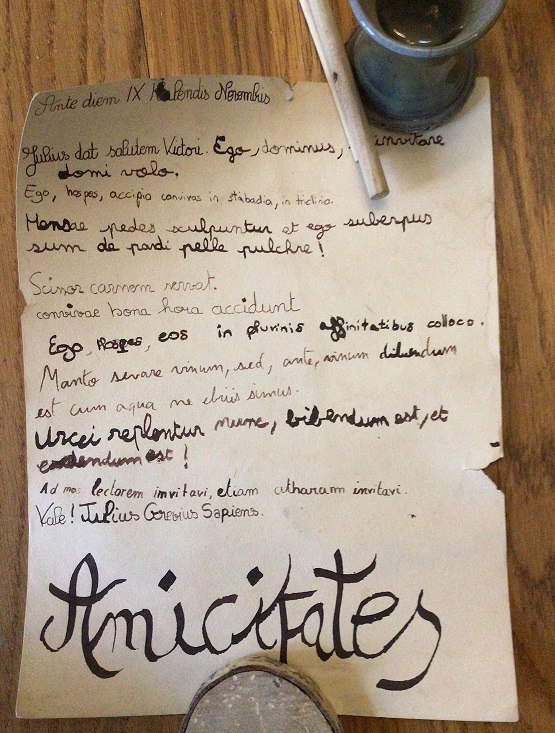 Ante diem IX Kalendis Novembris
Julius dat salutem Victori. Ego, dominus, invitare
domi volo.
Ego, hospes, accipio convivas in stabadia, in triclinio.
Mensae pedes sculpuntur et ego suberpus
sum de pardi pelle pulchre!
Scissor carnem servat.
convivae bona hora accidunt
Ego, Hospes, eos in plurinis affinitatibus colloco.
Manto servare vinum, sed, ante, vinum diluendum
est cum aqua ne ebrii simus.
Urcei replentur nunc, bibendum est, et
edendum est!
Ad me lectorem invitavi, etiam citharam invitavi.
Vale! Julius Sapiens.
Amicitates